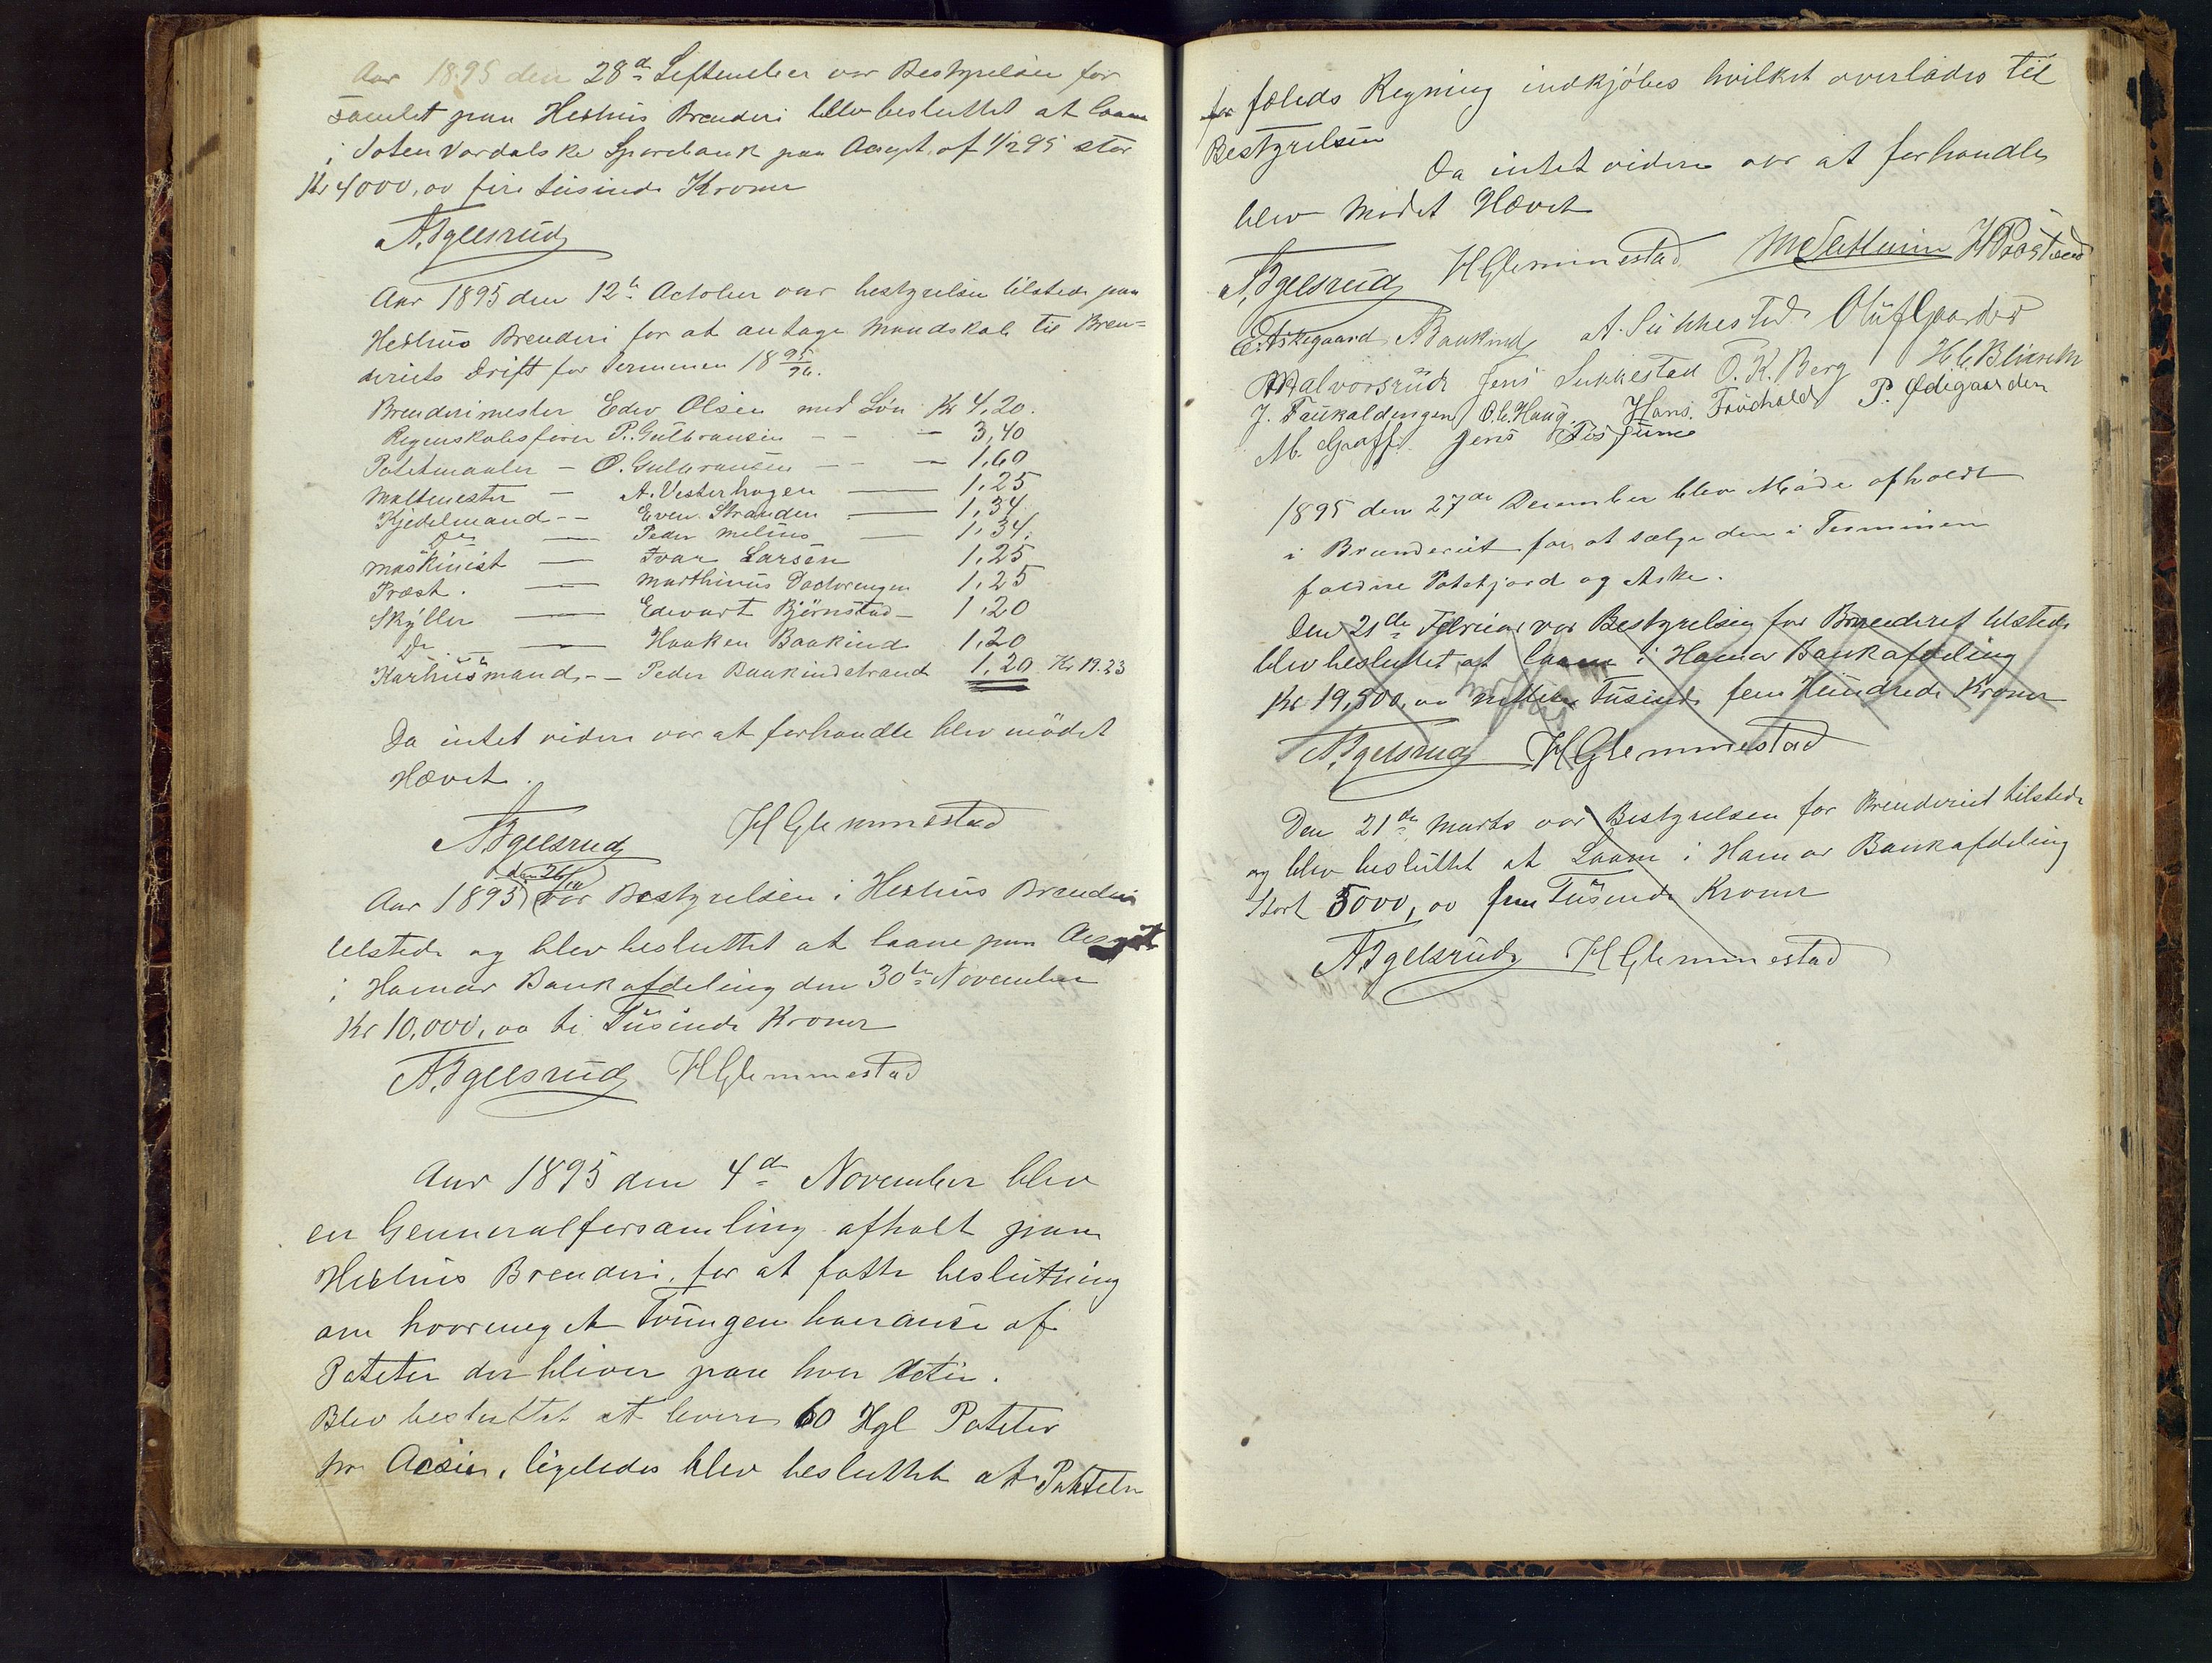 Aar 1895 den 28d September var Bestyrelsen for
samlet paa Heshus Brenderi blev besluttet at laane
i Toten Vardalske Sparebank paa Acsept. af 1/12 95 stor
Kr 4000,00 fire tusinde Kroner
A. Tgelsrud
Aar 1895 den 12te October var bestyrelsen tilstede paa
Heshus Brenderi for at antage Mandskab til Bren-
deriets Drift for Terminen 18 95/96.
Brenderimester Edev Olsen med Løn Kr 4,20.
Regenskabsfører P. Gulbransen - - — 3,40
Potetmaaler - O. Gulbransen - - — 1,60
Maltmester — A. Vesterhagen — 1,25
Kjedelmand - - Even Stranden — 1,34
Do — Peder Melius — 1,34.
Maskinist — Ivar Larsen 1,25
Præst. — Marthinus Dactorengen 1,25
Skyller — Edevart Bjørnstad - 1,20
Do — Haaken Baakind 1,20
Karhusmand - - Peder Baakindstrand 1,20 Kr 19.23
Da intet videre var at forhandle blev mødet
Hævet.
A. Tgelsrud H Glemmestad
den 26/10
Aar 1895 var Bestyrelsen i Heshus Brenderi
tilstede og blev besluttet at laane paa Acsept
i Hamar Bankafdeling den 30te November
Kr 10,000,00 ti Tusinde Kroner
A. Tgelsrud H Glemmestad
Aar 1895 den 4d November blev
en Genneralforsamling afholt paa
Heshus Brenderi, for at fatte beslutning
om hvormeget Tvungen leverance af
Poteter der bliver paa hver Actie.
Blev besluttet at levere 60 Hgl Poteter
pr Acsie, ligeledes blev besluttet at Poteter
for fæleds Regning indkjøbes hvilket overlades til
Bestyrelsen
Da intet videre var at forhandle
blev Mødet Hævet
A. Tgelsrud H Glemmestad M Sletteim H Prøstrud
E. Askegaard A Baakind A. Sukkestad Oluf Gaarder
A Halvorsrud Jens Sukkestad O. K. Berg H. C. Blixseth
J. Taukaldengen O. C. Haug. Hans. Frøchold P. Ødegaarden
M. Graff. Jens
1895 den 27de December blev Møde afholdt
i Brænderiet for at sælge den i Terminen
faldne Potetjord og Aske.
Den 21de Februar var Bestyrelsen for Brænderiet tilstede
blev besluttet at laane i Hamar Bankafdeling
Kr 19,500,00 nitten Tusinde fem Hundrede Kroner
A. Tgelsrud H Glemmestad
Den 21de Marts var Bestyrelsen for Brenderiet tilstede
og blev besluttet at Laane i Hamar Bankafdeling
Stort 5000,00 fem Tusinde Kroner
A. Tgelsrud H Glemmestad